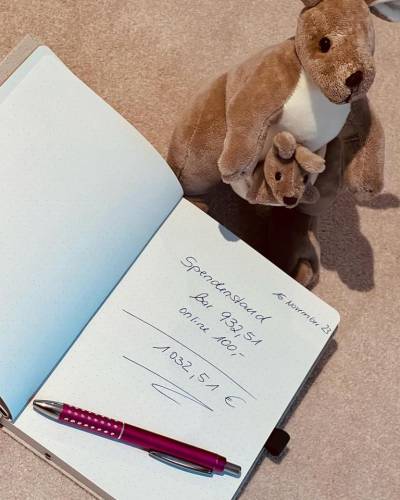 16 November 23
Spendenstand
bar 932,51
online 100,-
1032,51 €